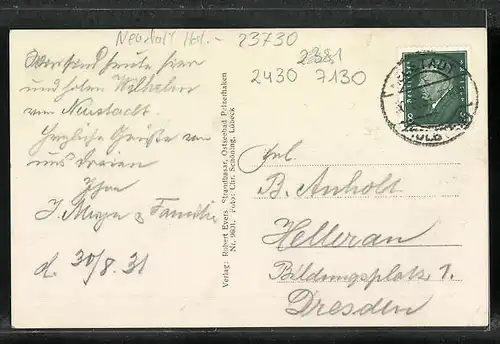 Neustadt Hol. - 23730
2381
2430 7130
heute hier
und holen Wilhelm
von Neustadt.
Herzliche Grüße von
uns dreien
Ihre
J. Meyn & Familie
d. 30/8. 31
Verlag: Robert Evers, Strandbasar, Ostseebad Pelzerhaken
Nr. 9801. Foto: Chr. Schöning, Lübeck
Frl.
B. Anholt
Hellerau
Bildungsplatz 1.
Dresden